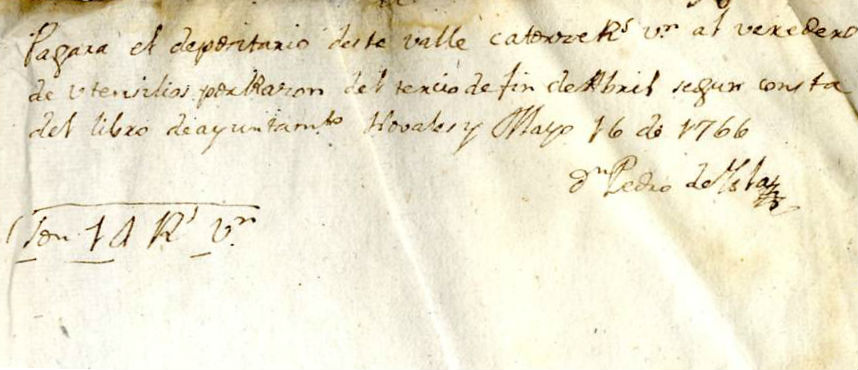 Pagara el depositario deste valle catorze Rs vn al veredero
de vtensilios por Razon del tercio de fin de Abril segun consta
del libro de ayuntamto Novales y Mayo 16 de 1766
Dn Pedro de Isla
Son 14 Rs vn